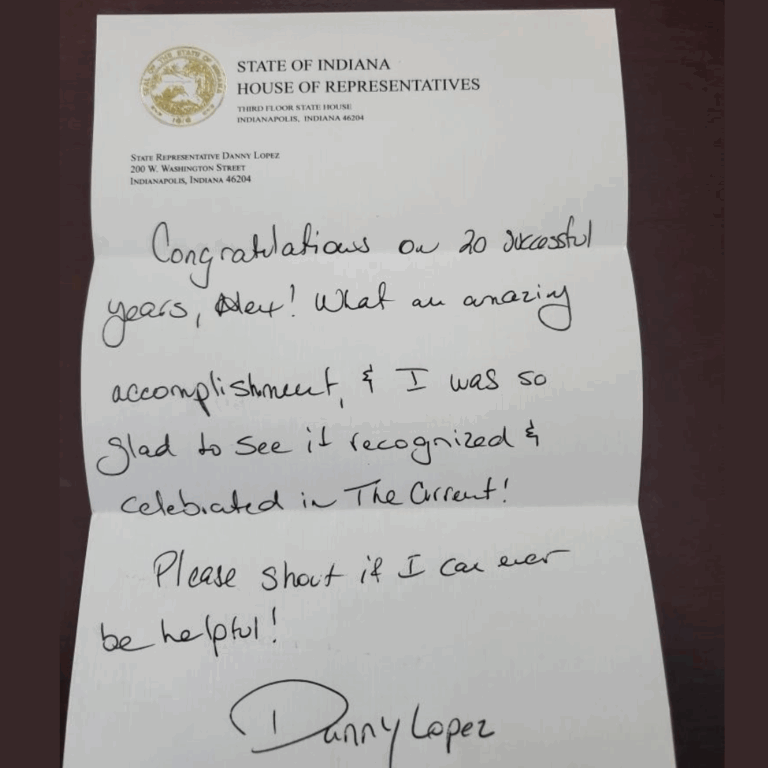 SEAL OF THE STATE OF INDIANA
1816
STATE OF INDIANA
HOUSE OF REPRESENTATIVES
THIRD FLOOR STATE HOUSE
INDIANAPOLIS, INDIANA 46204
STATE REPRESENTATIVE DANNY LOPEZ
200 W. WASHINGTON STREET
INDIANAPOLIS, INDIANA 46204
Congratulations on 20 successful
years, Alex! What an amazing
accomplishment, & I was so
glad to see it recognized &
celebrated in The Current!
Please shout if I can ever
be helpful!
Danny Lopez